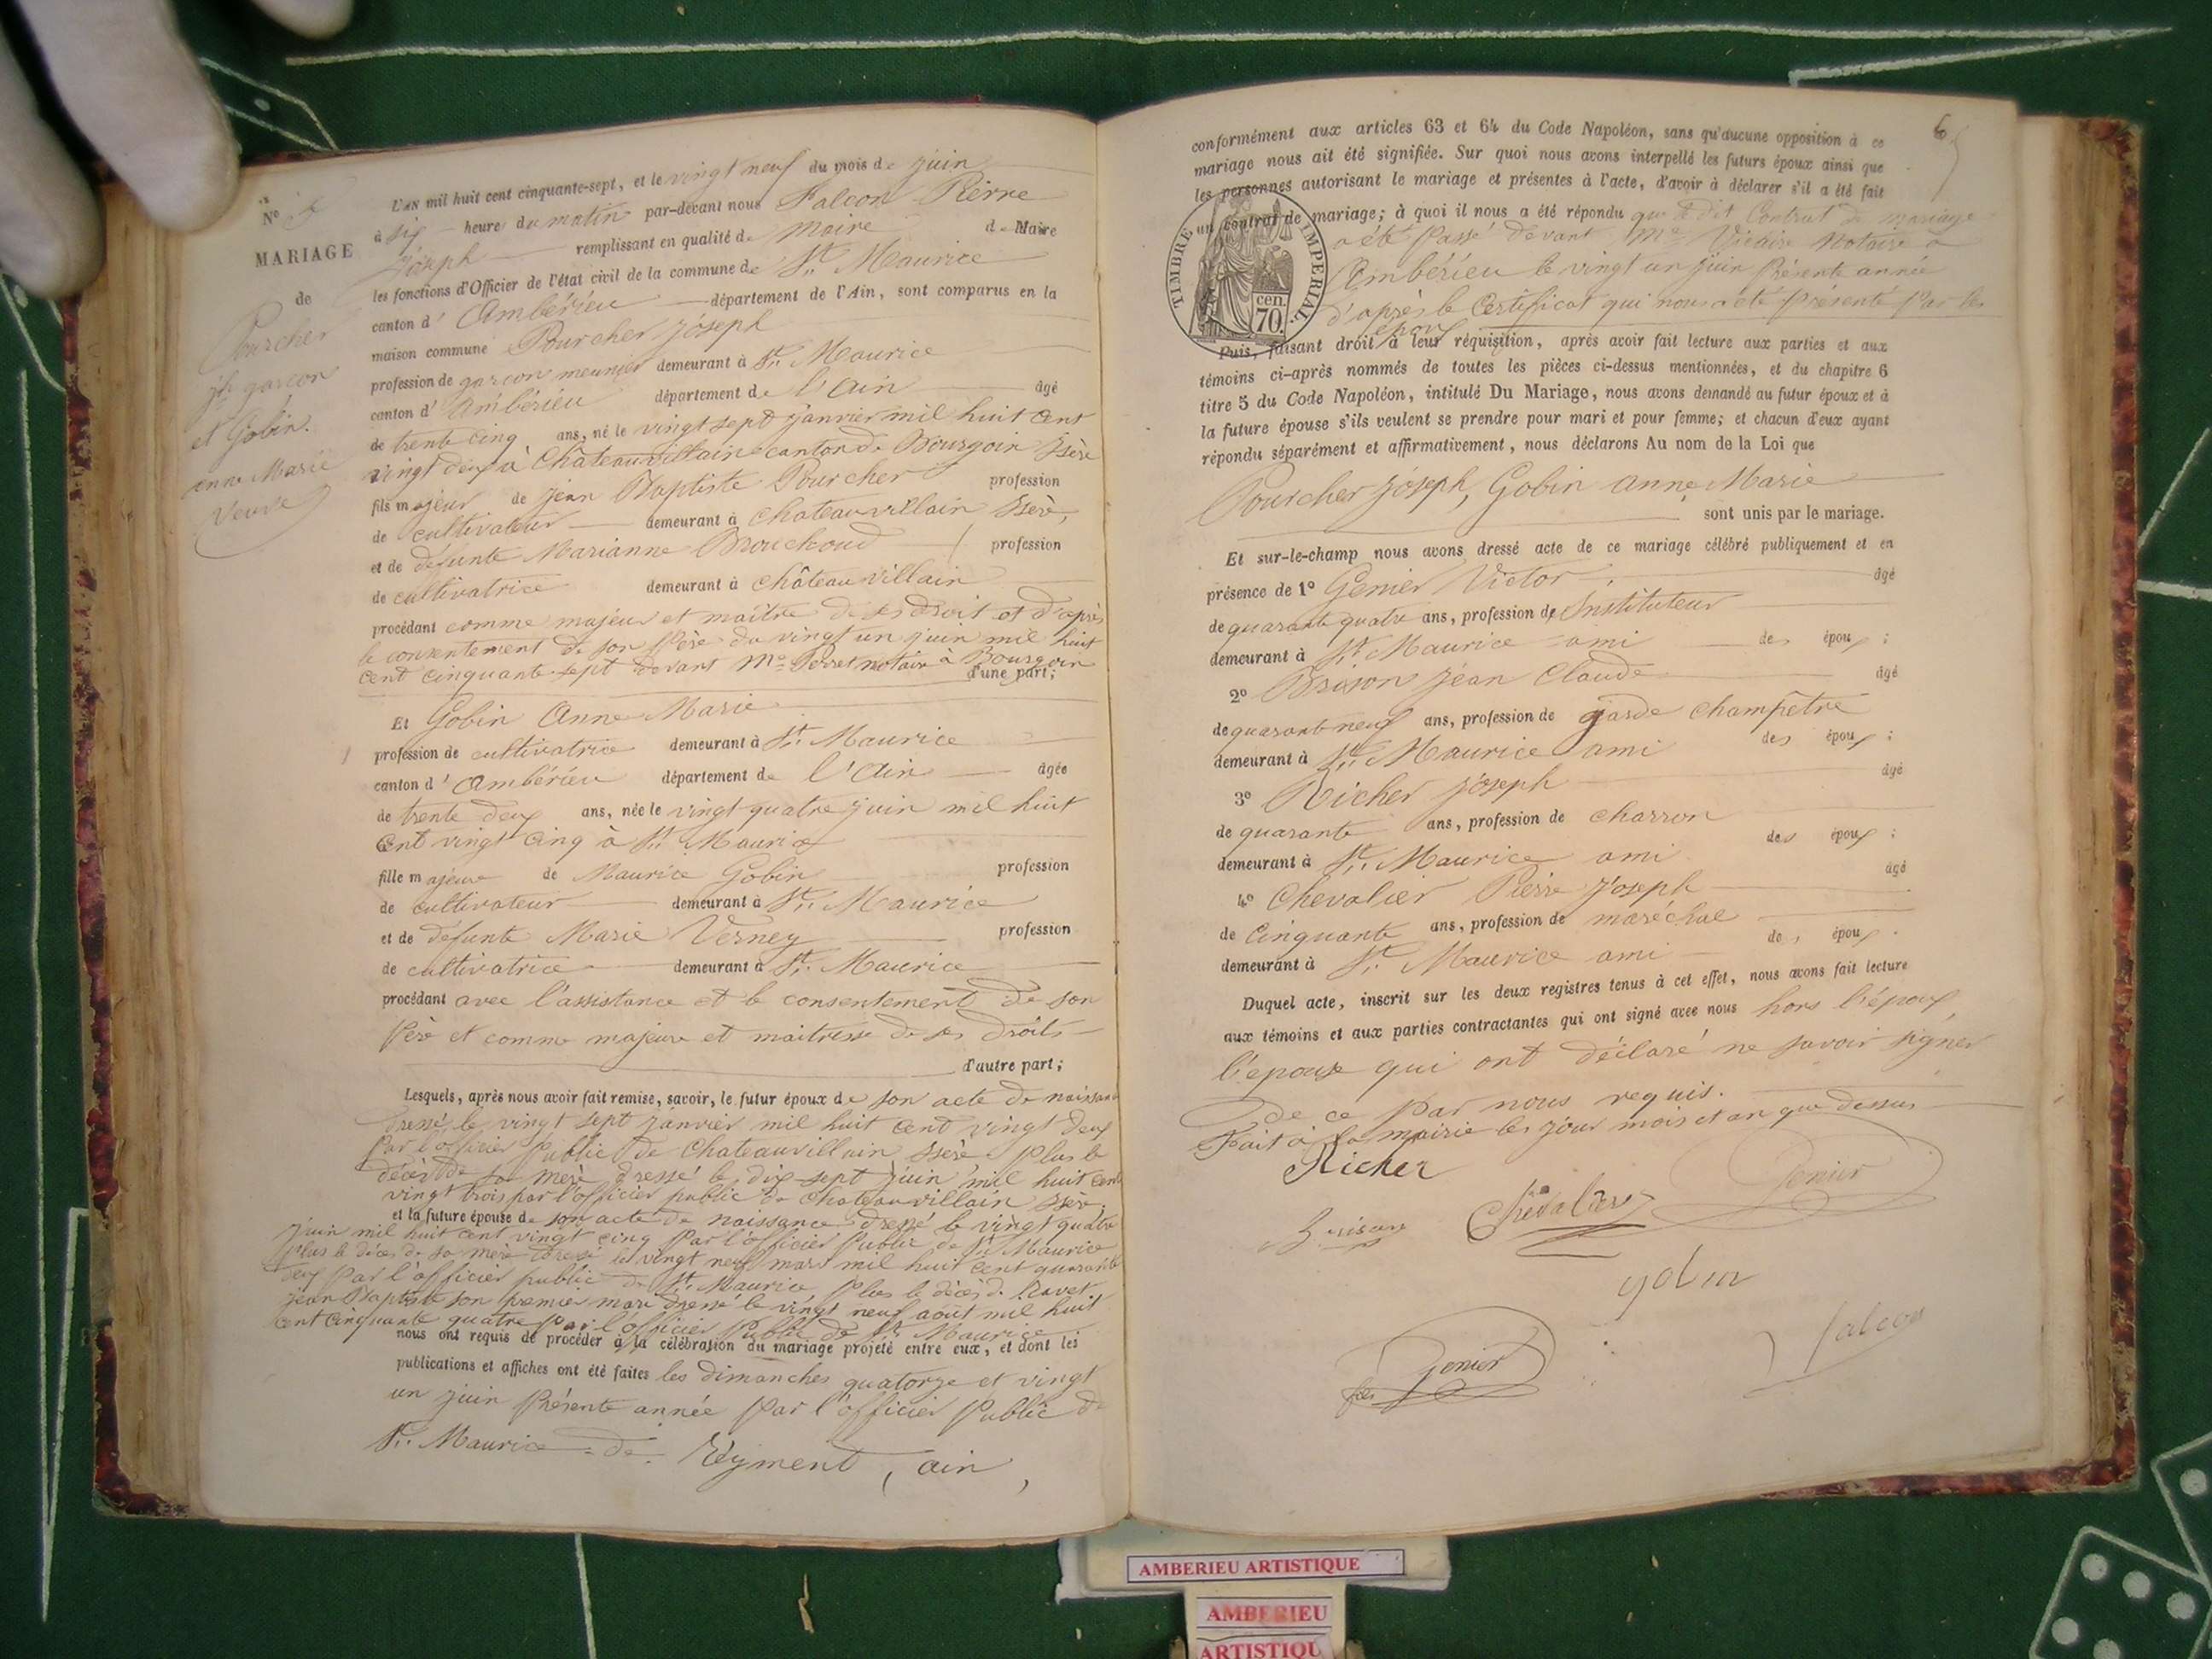 N° 5
MARIAGE
de
Pourcher
jh garcon
et Gobin
anne Marie
Veuve
L'AN mil huit cent cinquante-sept, et le vingt neuf du mois de juin
à six heure du matin par-devant nous Falcon Pierre
Joseph remplissant en qualité de maire de Maire
les fonctions d'Officier de l'état civil de la commune de St Maurice
canton d'Ambérieu département de l'Ain, sont comparus en la
maison commune Pourcher joseph
profession de garcon meunier demeurant à St Maurice
canton d'ambérieu département de l'ain âgé
de trente cinq ans, né le vingt sept janvier mil huit cent
vingt deux à Châteauvillain canton de Bourgoin Isère
fils majeur de jean Baptiste Pourcher profession
de cultivateur demeurant à chateauvillain Isère,
et de défunte Marianne Brouchoud profession
de cultivatrice demeurant à châteauvillain
procédant comme majeur et maître de ses droit et d'après
le consentement de son père du vingt un juin mil huit
cent cinquante-sept devant Me Perret notaire à Bourgoin
d'une part;
Et Gobin Anne Marie
profession de cultivatrice demeurant à St Maurice
canton d'Ambérieu département de l'Ain âgée
de trente deux ans, née le vingt quatre juin mil huit
cent vingt cinq à St Maurice
fille majeure de Maurice Gobin profession
de cultivateur demeurant à St Maurice
et de défunte Marie Verney profession
de cultivatrice demeurant à St Maurice
procédant avec l'assistance et le consentement de son
Père et comme majeure et maitresse de ses droits
d'autre part;
Lesquels, après nous avoir fait remise, savoir, le futur époux de son acte de naissance
dressé le vingt sept janvier mil huit cent vingt deux
par l'officier Public de Chateauvillain Isère plus le
décès de sa mère dressé le dix-sept juin mil huit cent
vingt trois par l'officier public de chateauvillain Isère
et la future épouse de son acte de naissance dressé le vingt quatre
juin mil huit cent vingt cinq par l'officier Public de St Maurice
plus le décès de sa mère dressé le vingt neuf mars mil huit cent quarante
deux par l'officier public de St Maurice, plus le décès de Ravet
jean Baptiste son premier mari dressé le vingt neuf aout mil huit
cent cinquante quatre par l'officier Public de St Maurice
nous ont requis de procéder à la célébration du mariage projeté entre eux, et dont les
publications et affiches ont été faites les dimanches quatorze et vingt
un juin Présente année par l'officier Public de
St Maurice de Réyment, ain,
6
conformément aux articles 63 et 64 du Code Napoléon, sans qu'aucune opposition à ce
mariage nous ait été signifiée. Sur quoi nous avons interpellé les futurs époux ainsi que
les personnes autorisant le mariage et présentes à l'acte, d'avoir à déclarer s'il a été fait
un contrat de mariage; à quoi il nous a été répondu que le dit Contrat de mariage
a été Passé devant Me Vicaire Notaire à
Ambérieu le vingt un juin Présente année
d'après le certificat qui nous a été présenté Par les
epoux
TIMBRE IMPERIAL
70 cen.
Puis, faisant droit à leur réquisition, après avoir fait lecture aux parties et aux
témoins ci-après nommés de toutes les pièces ci-dessus mentionnées, et du chapitre 6
titre 5 du Code Napoléon, intitulé Du Mariage, nous avons demandé au futur époux et à
la future épouse s'ils veulent se prendre pour mari et pour femme; et chacun d'eux ayant
répondu séparément et affirmativement, nous déclarons Au nom de la Loi que
Pourcher joseph, Gobin anne Marie
sont unis par le mariage.
Et sur-le-champ nous avons dressé acte de ce mariage célébré publiquement et en
présence de 1° Genier Victor âgé
de quarante quatre ans, profession de Instituteur
demeurant à St Maurice ami des époux;
2° Brison Jean Claude âgé
de quarante neuf ans, profession de garde champêtre
demeurant à St Maurice ami des époux;
3° Richer joseph âgé
de quarante ans, profession de charron
demeurant à St Maurice ami des époux;
4° Chevalier Pierre Joseph âgé
de Cinquante ans, profession de maréchal
demeurant à St Maurice ami des époux.
Duquel acte, inscrit sur les deux registres tenus à cet effet, nous avons fait lecture
aux témoins et aux parties contractantes qui ont signé avec nous hors l'époux,
l'epouse qui ont déclaré ne savoir signer
de ce par nous requis.
Fait à la mairie les jour mois et an que dessus
Richer
Genier
Chevalier
gobin
Genier
falcon
AMBERIEU ARTISTIQUE
AMBERIEU
ARTISTIQU